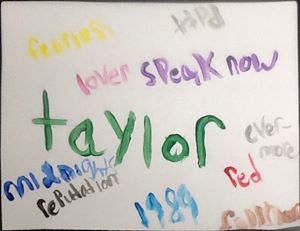 fearless
TTPD
lover
SPEAK NOW
taylor
ever-
more
midnights
reputation
red
1989
folklore